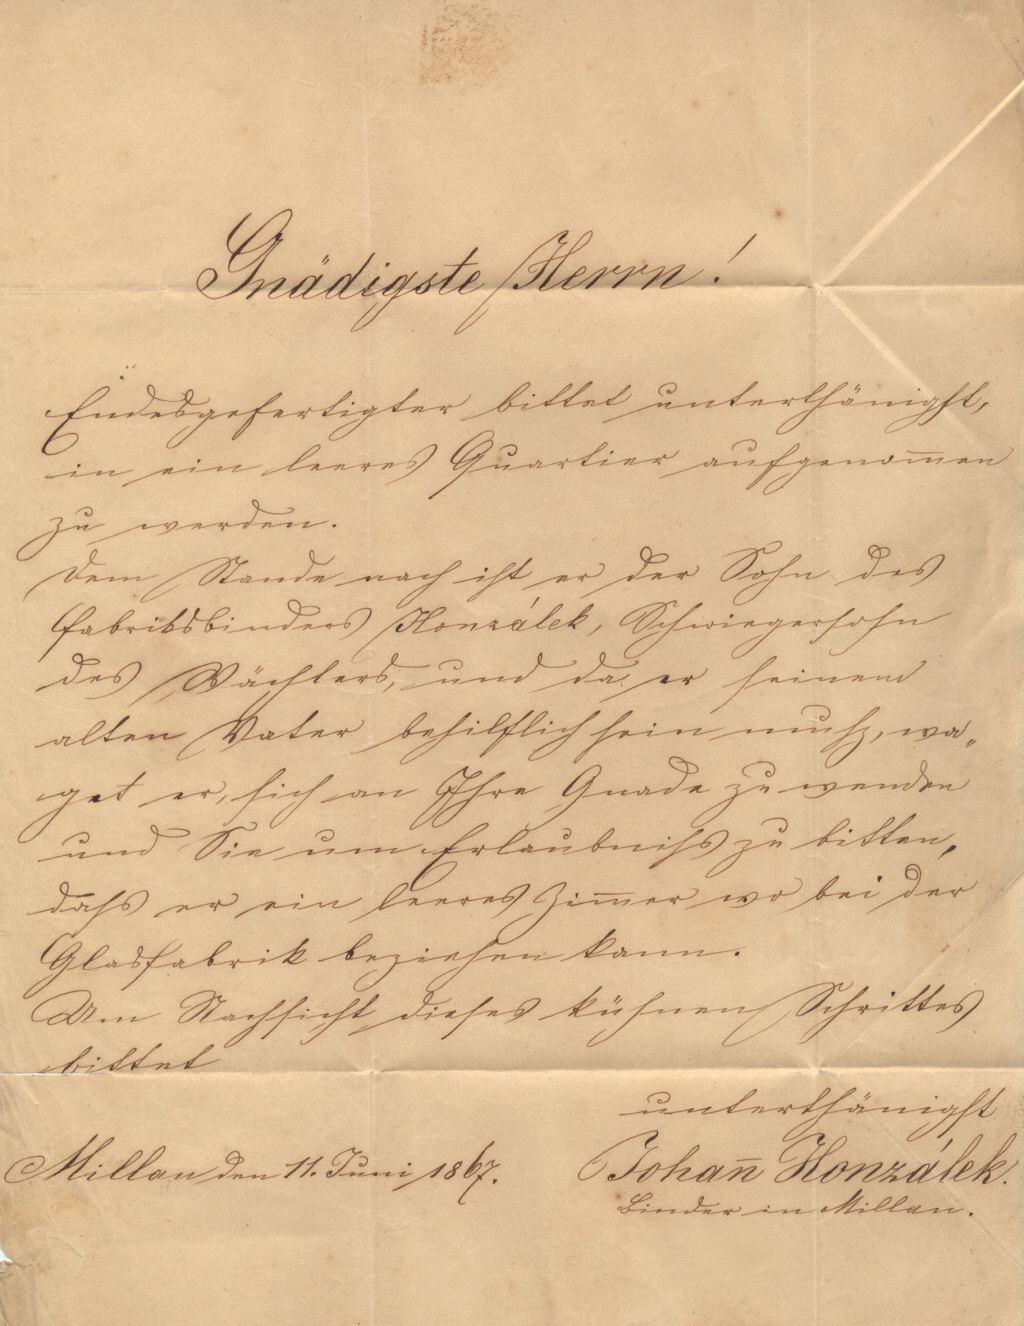 Gnädigste Herrn!
Endesgefertigter bittet unterthänigst,
in ein leeres Quartier aufgenom̅en
zu werden.
Dem Stande nach ist er der Sohn des
Fabriksbinders Honzálek, Schwiegersohn
des Wächters, und da er seinem
alten Vater behilflich sein muß, wa„
get er, sich an Ihre Gnade zu wenden
und Sie um Erlaubniß zu bitten,
daß er ein leeres Zim̅er wo bei der
Glasfabrik beziehen kann.
Um Nachsicht dieses kühnen Schrittes
bittet
unterthänigst
Millau den 11. Juni 1867.
Johan̅ Honzálek.
Binder in Millau.